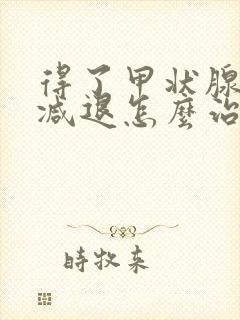 得了甲状腺
减退怎麼治
時牧来